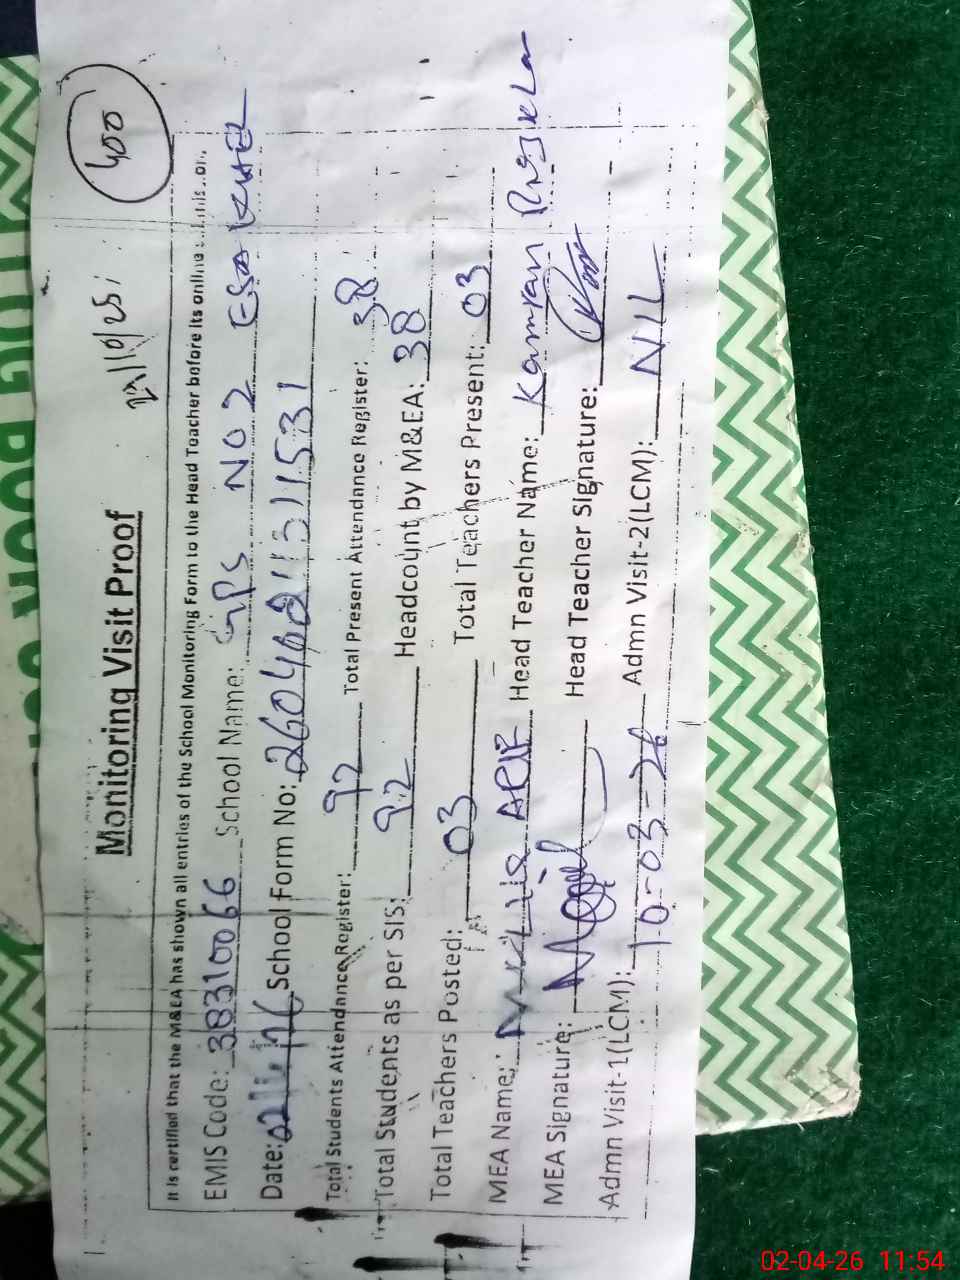 400
Monitoring Visit Proof
/10/25
It is certified that the M&EA has shown all entries of the School Monitoring Form to the Head Teacher before its online
EMIS Code: 38310066 School Name: GPS NO 2 ESA KHEL
Date: School Form No:
Total Students Attendance Register: 92 Total Present Attendance Register: 38
Total Students as per SIS: 92 Headcount by M&EA: 38
Total Teachers Posted: 03 Total Teachers Present: 03
MEA Name: ARIF Head Teacher Name: Kamran
MEA Signature: Head Teacher Signature:
Admn Visit-1(LCM): 10-03-26 Admn Visit-2(LCM): NIL
02-04-26 11:54